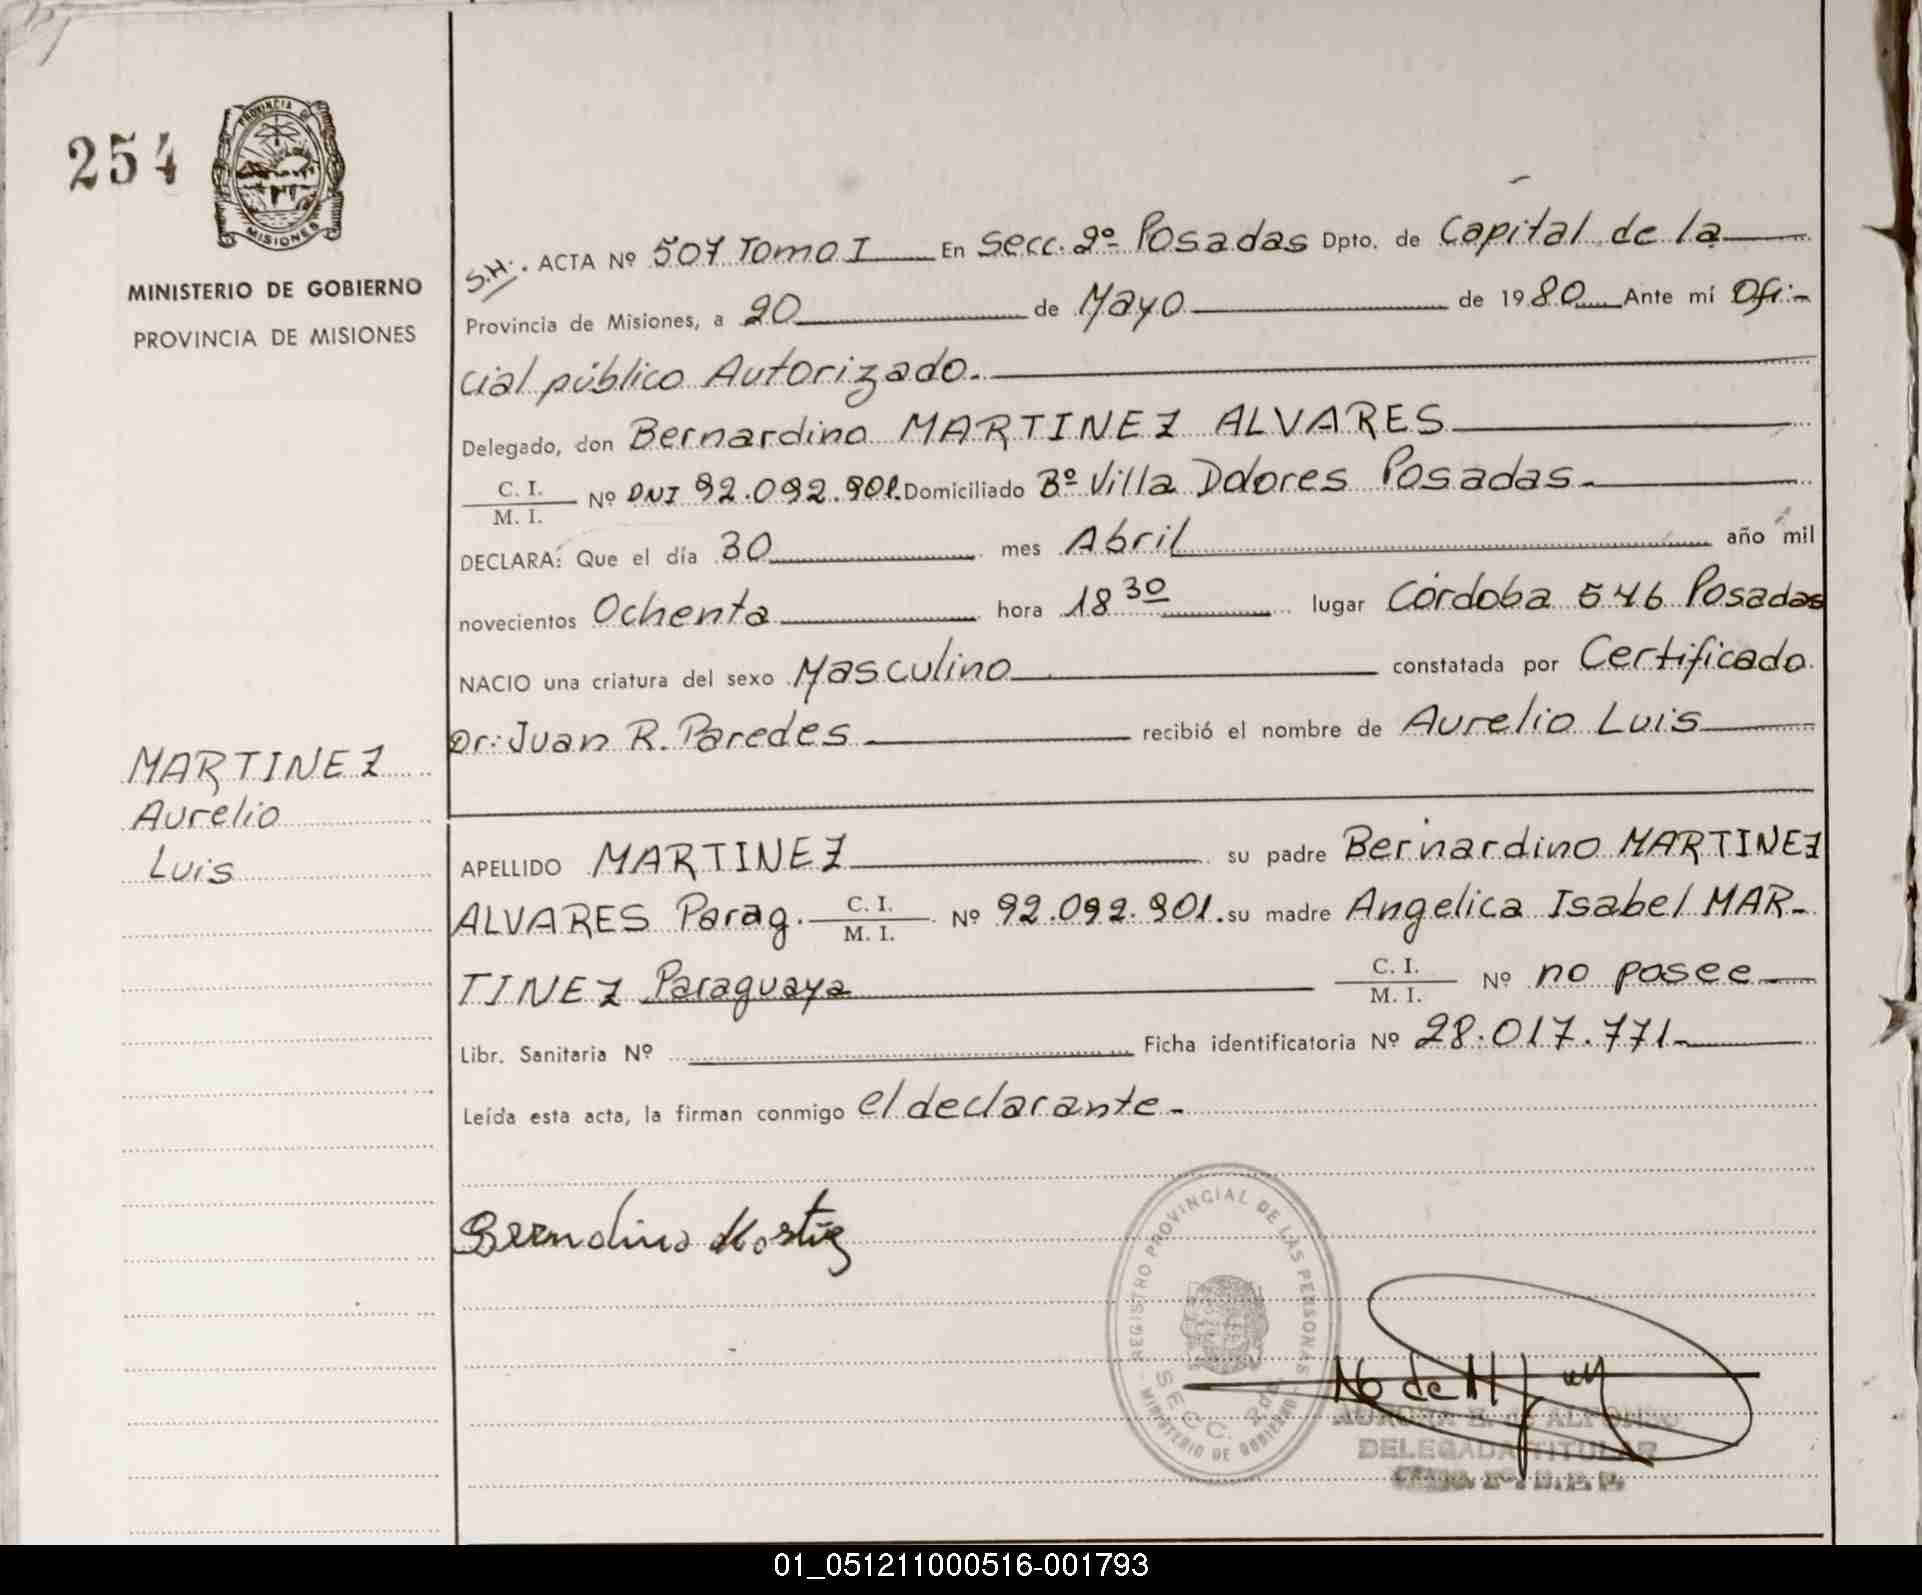 254
PROVINCIA DE
MISIONES
MINISTERIO DE GOBIERNO
PROVINCIA DE MISIONES
MARTINEZ
Aurelio
Luis
S.H: . ACTA Nº 507 Tomo I En Secc. 2º Posadas Dpto. de Capital de la
Provincia de Misiones, a 20 de Mayo de 1980 Ante mí Ofi-
cial público Autorizado.
Delegado, don Bernardino MARTINEZ ALVARES
C. I. / M. I. Nº DNI 92.092.901. Domiciliado Bº Villa Dolores Posadas.
DECLARA: Que el día 30 mes Abril año mil
novecientos Ochenta hora 18 30 lugar Córdoba 546 Posadas
NACIO una criatura del sexo Masculino constatada por Certificado
Dr: Juan R. Paredes recibió el nombre de Aurelio Luis
APELLIDO MARTINEZ su padre Bernardino MARTINEZ
ALVARES Parag. C. I. / M. I. Nº 92.092.901. su madre Angelica Isabel MAR-
TINEZ Paraguaya C. I. / M. I. Nº no posee
Libr. Sanitaria Nº Ficha identificatoria Nº 28.017.771-
Leída esta acta, la firman conmigo el declarante-
REGISTRO PROVINCIAL DE LAS PERSONAS
SECC. 2da.
MINISTERIO DE GOBIERNO
DELEGADA TITULAR
01_051211000516-001793